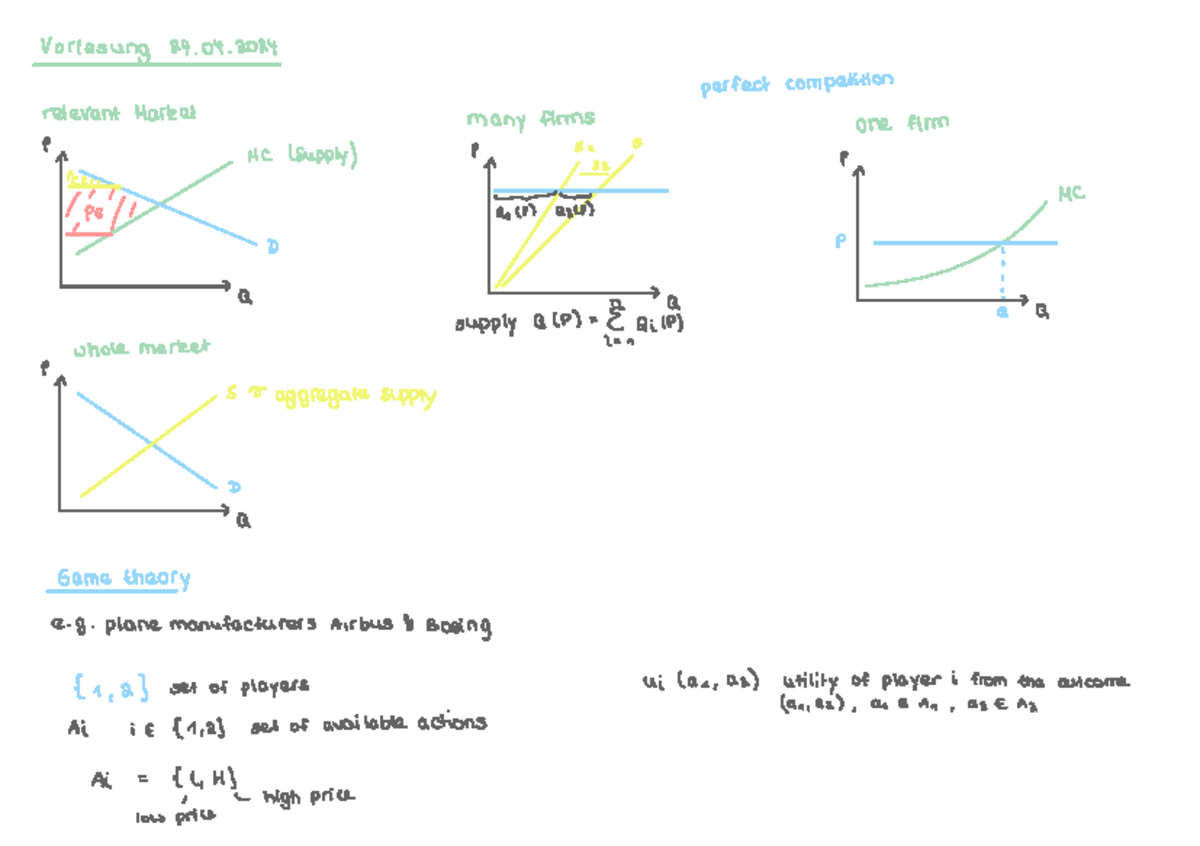 Vorlesung
perfect competition
relevant Market
P
MC (supply)
PS
D
Q
many firms
P
S₁
S₂
Q₁(P) Q₂(P)
Q
supply Q(P) = Σ Qi(P)
n
i=1
one firm
P
MC
P
Q
Q
whole market
P
S ≈ aggregate supply
D
Q
Game theory
e.g. plane manufacturers Airbus & Boeing
{1,2} set of players
Ai i ∈ {1,2} set of available actions
Ai = {L, H}
high price
low price
ui (a₁, a₂) utility of player i from the outcome
(a₁, a₂), a₁ ∈ A₁, a₂ ∈ A₂